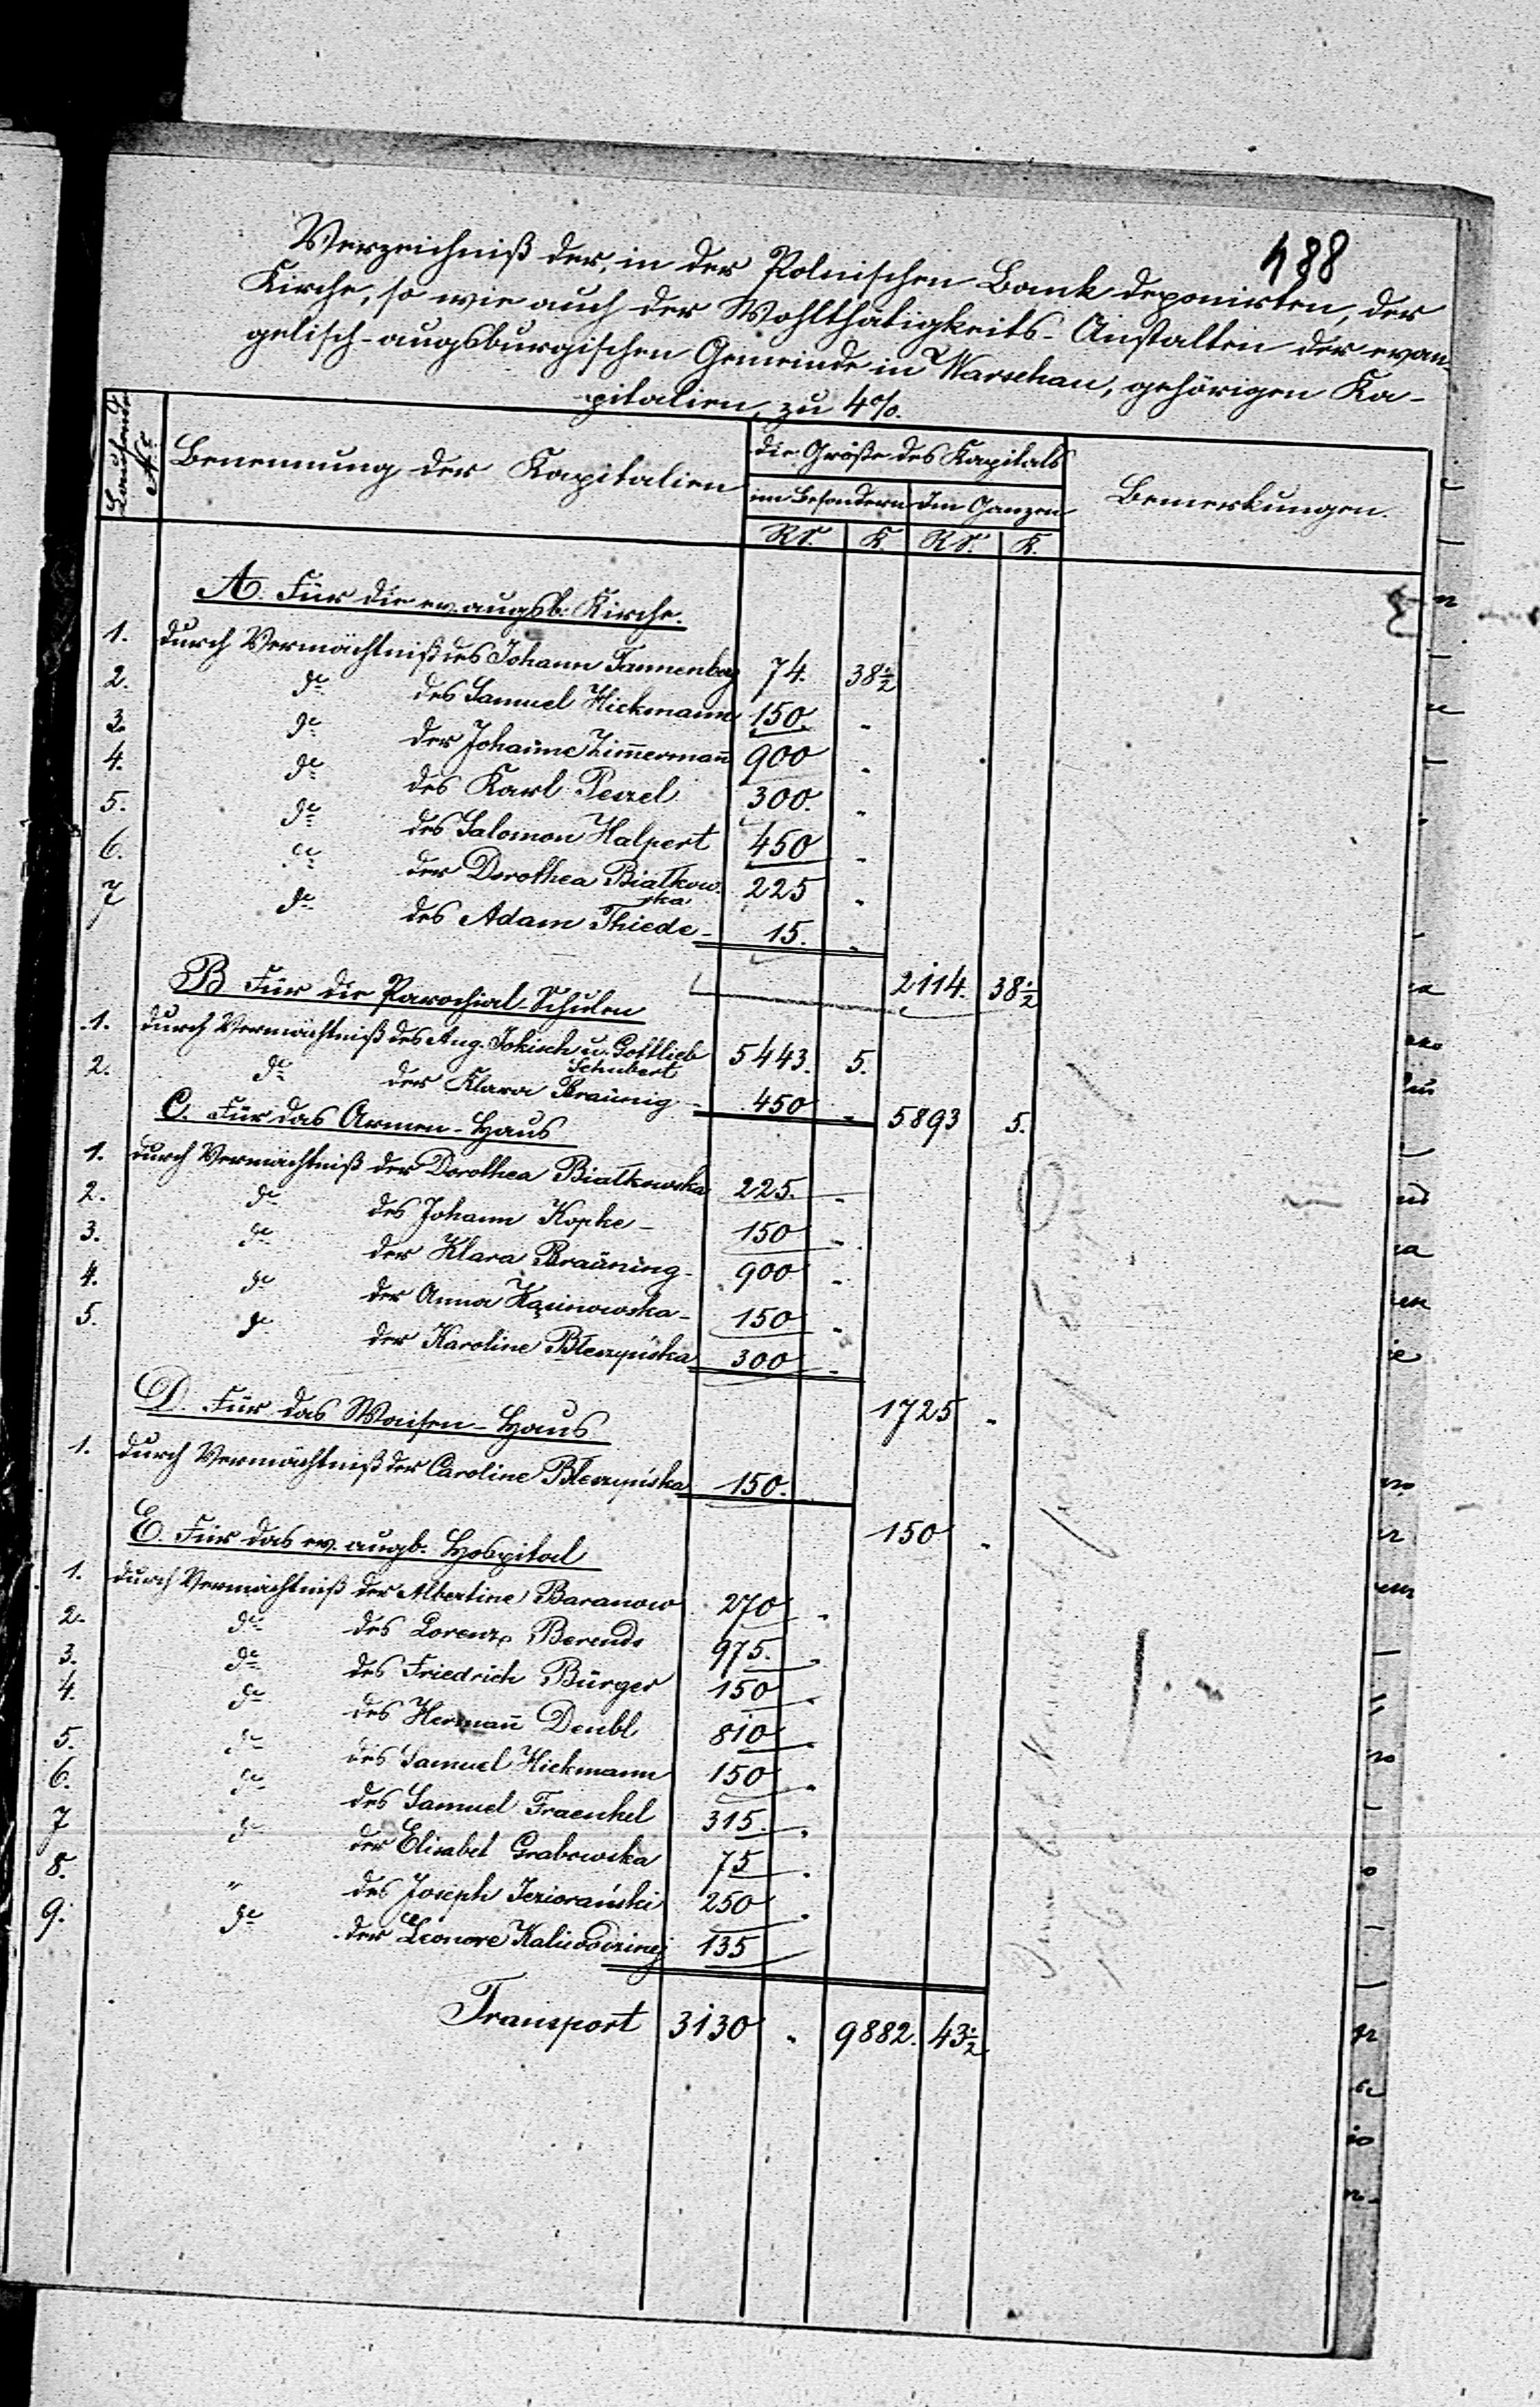 488
Verzeichniß der, in der Polnischen Bank deponirten, der
Kirche, so wie auch der Wohlthätigkeits-Anstalten der evan-
gelisch-augsburgischen Gemeinde in Warschau, gehörigen Ka-
pitalien, zu 4%.
Laufende No
Benennung der Kapitalien
die Größe des Kapitals
Bemerkungen.
im Besondern im Ganzen
RS. K. RS. K.
A. Für die ev. augsb. Kirche.
1. durch Vermächtniß des Johann Tannenberg 74. 38 1/2
2. do des Samuel Hickmann 150. "
3. do der Johanne Zimmermann 900 "
4. do des Karl Peszel 300. "
5. do des Salomon Halpert 450 "
6. do der Dorothea Białkow- 225 "
ska
7 do des Adam Thiede - 15. "
2114. 38 1/2
B Für die Parochial-Schulen
1. durch Vermächtniß des Aug. Jokisch u. Gottlieb 5443. 5.
Schubert
2. do der Klara Bräunig - 450 " 5893 5.
C. Für das Armen-Haus
1. durch Vermächtniß der Dorothea Białkowska 225. "
2. do des Johann Kopke - 150 "
3. do der Klara Bräuning - 900 "
4. do der Anna - 150 "
5. do der Karoline Błeszyńska 300 "
1725 "
D. Für das Waisen-Haus
1. durch Vermächtniß der Caroline Błeszyńska 150.
150 "
E. Für das ev. augb. Hospital
1. durch Vermächtniß der Albertine Baranow 270 "
2. do des Lorenz Berends 975. "
3. do des Friedrich Bürger 150 "
4. do des Hermañ Deubl 810 "
5. do des Samuel Hickmann 150 "
6. do des Samuel Fraenkel 315. "
7 do der Elisabet Grabowska 75 "
8. " des Joseph Jeziorański 250 "
9. do der Leonore 135
Transport 3130 " 9882. 43 1/2